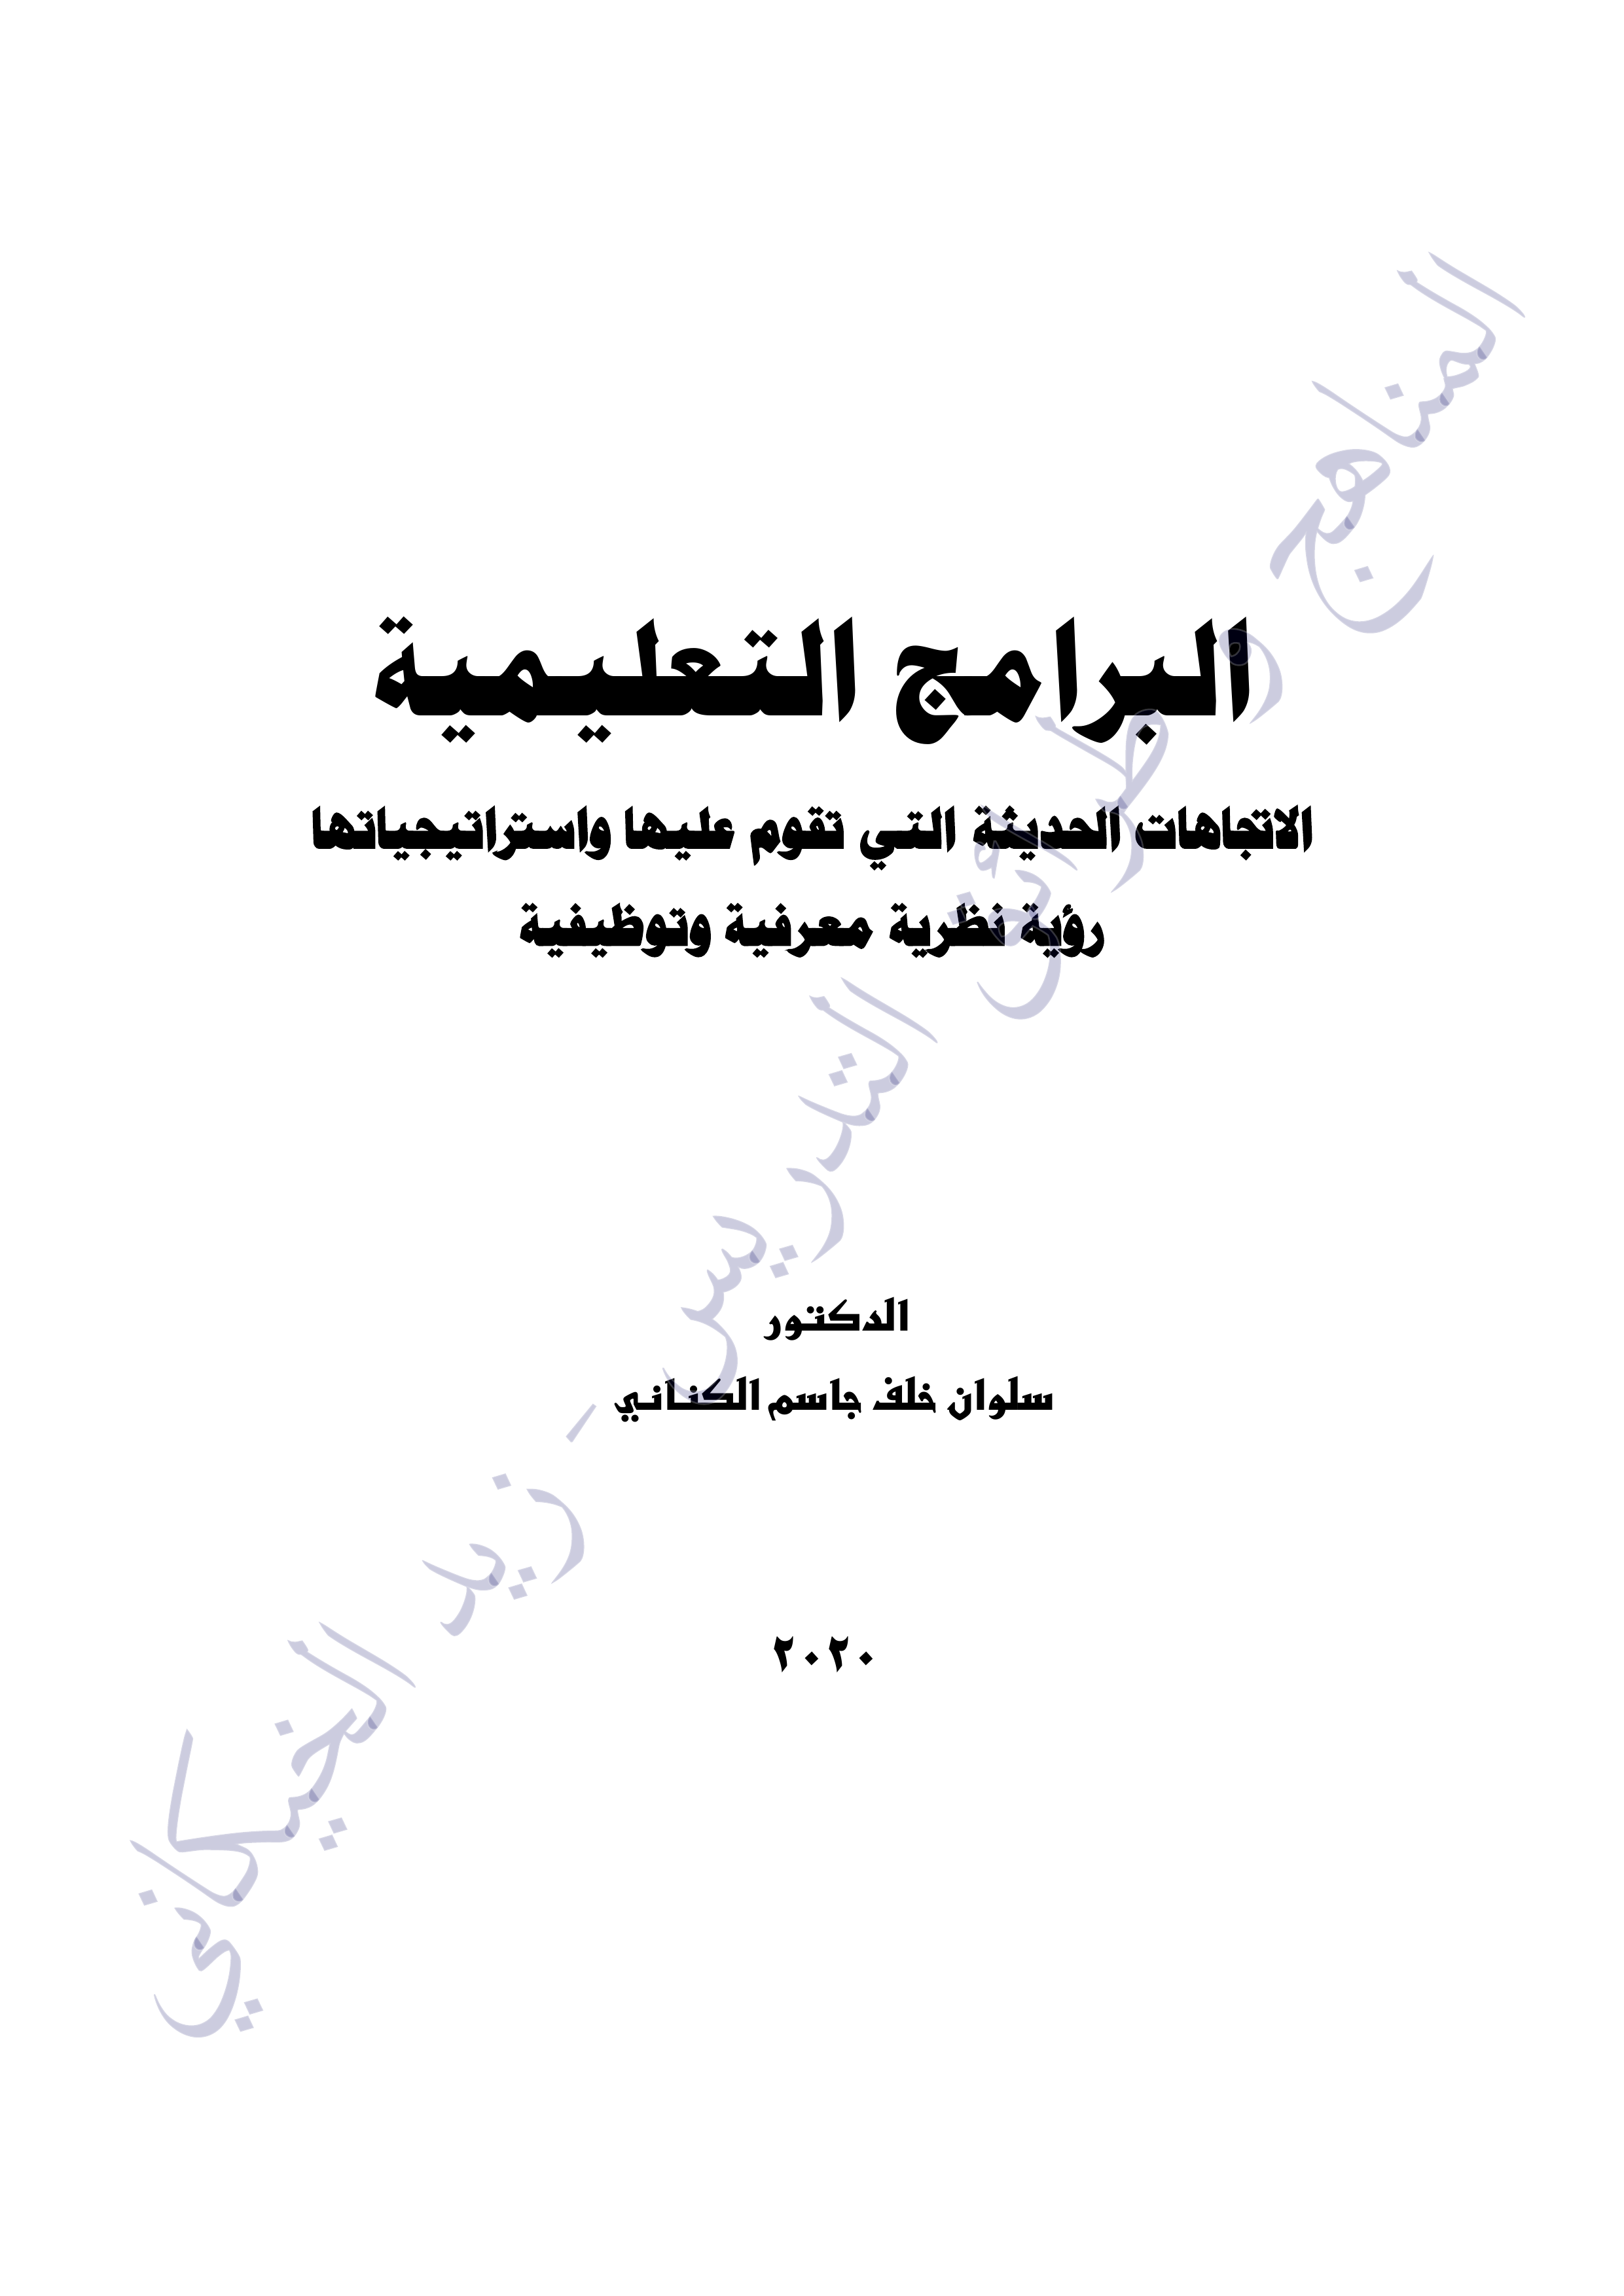 البرامج التعليمية
الاتجاهات الحديثة التي تقوم عليها واستراتيجياتها
رؤية نظرية معرفية وتوظيفية
الدكتور
سلوان خلف جاسم الكناني
٢٠٢٠
المناهج وطرائق التدريس - زيد الخيكاني